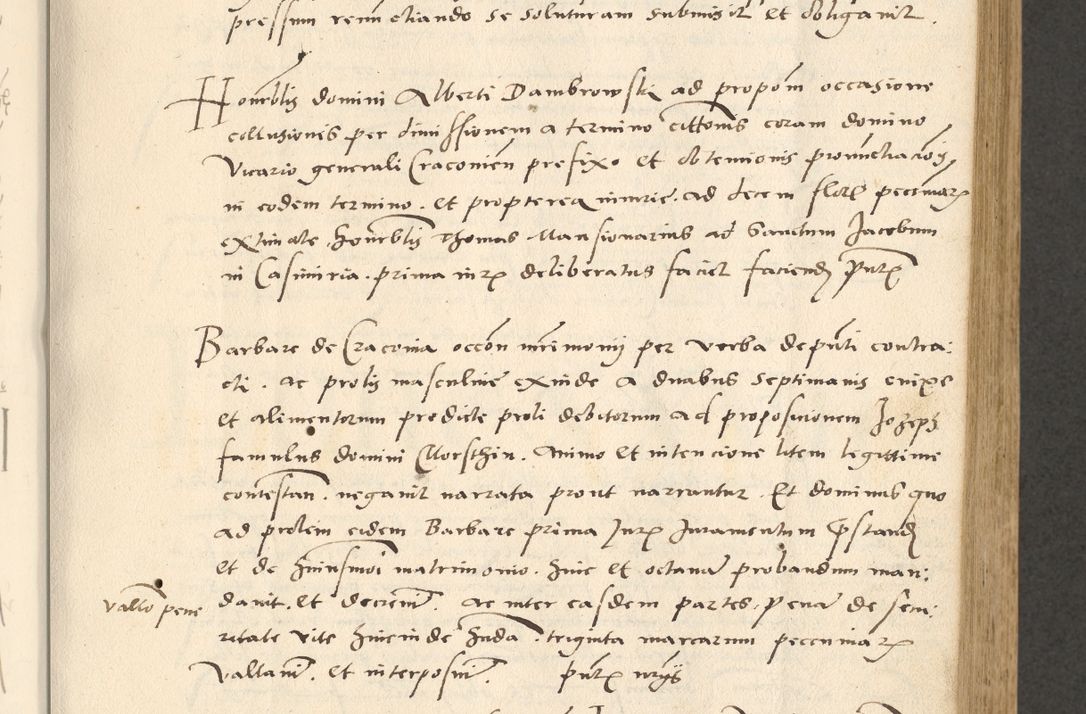 pressum renunctiando se soluturam submisit et obligavit.
Honorblis domini Alberti Dambrowski ad propom occasione
collusionis per dimissionem a termino cittonis coram domino
Vicario generali Cracovien prefixo et obtencionis pronunctiacois
in eodem termino. et propterea iniurie. ad decem flor pecuniar
extimate. honorblis Thomas Mansionarius ad Sanctum Jacobum
in Casimiria. prima iur deliberatus faciet faciend Pnt
Barbare de Cracovia occon mrimonij per verba de pnti contra:
cti. ac prolis masculine exinde a duabus septimanis enixe
et alimentorum predicte proli debitorum ad propositionem Jozeph
famulus domini Morsthin. Animo et intencione litem legittime
contestan. negavit narrata prout narrantur. Et dominus quo
ad prolem eidem Barbare prima Jur Juramentum pstand
et de huiusmoi matrimonio. hinc et octava probandum man:
davit. et decrevit. ac inter easdem partes. Pena de secu:
Vallo pene
ritate vite hincinde hnda. triginta marcarum pecuniar
vallavit. et interposuit. pnt